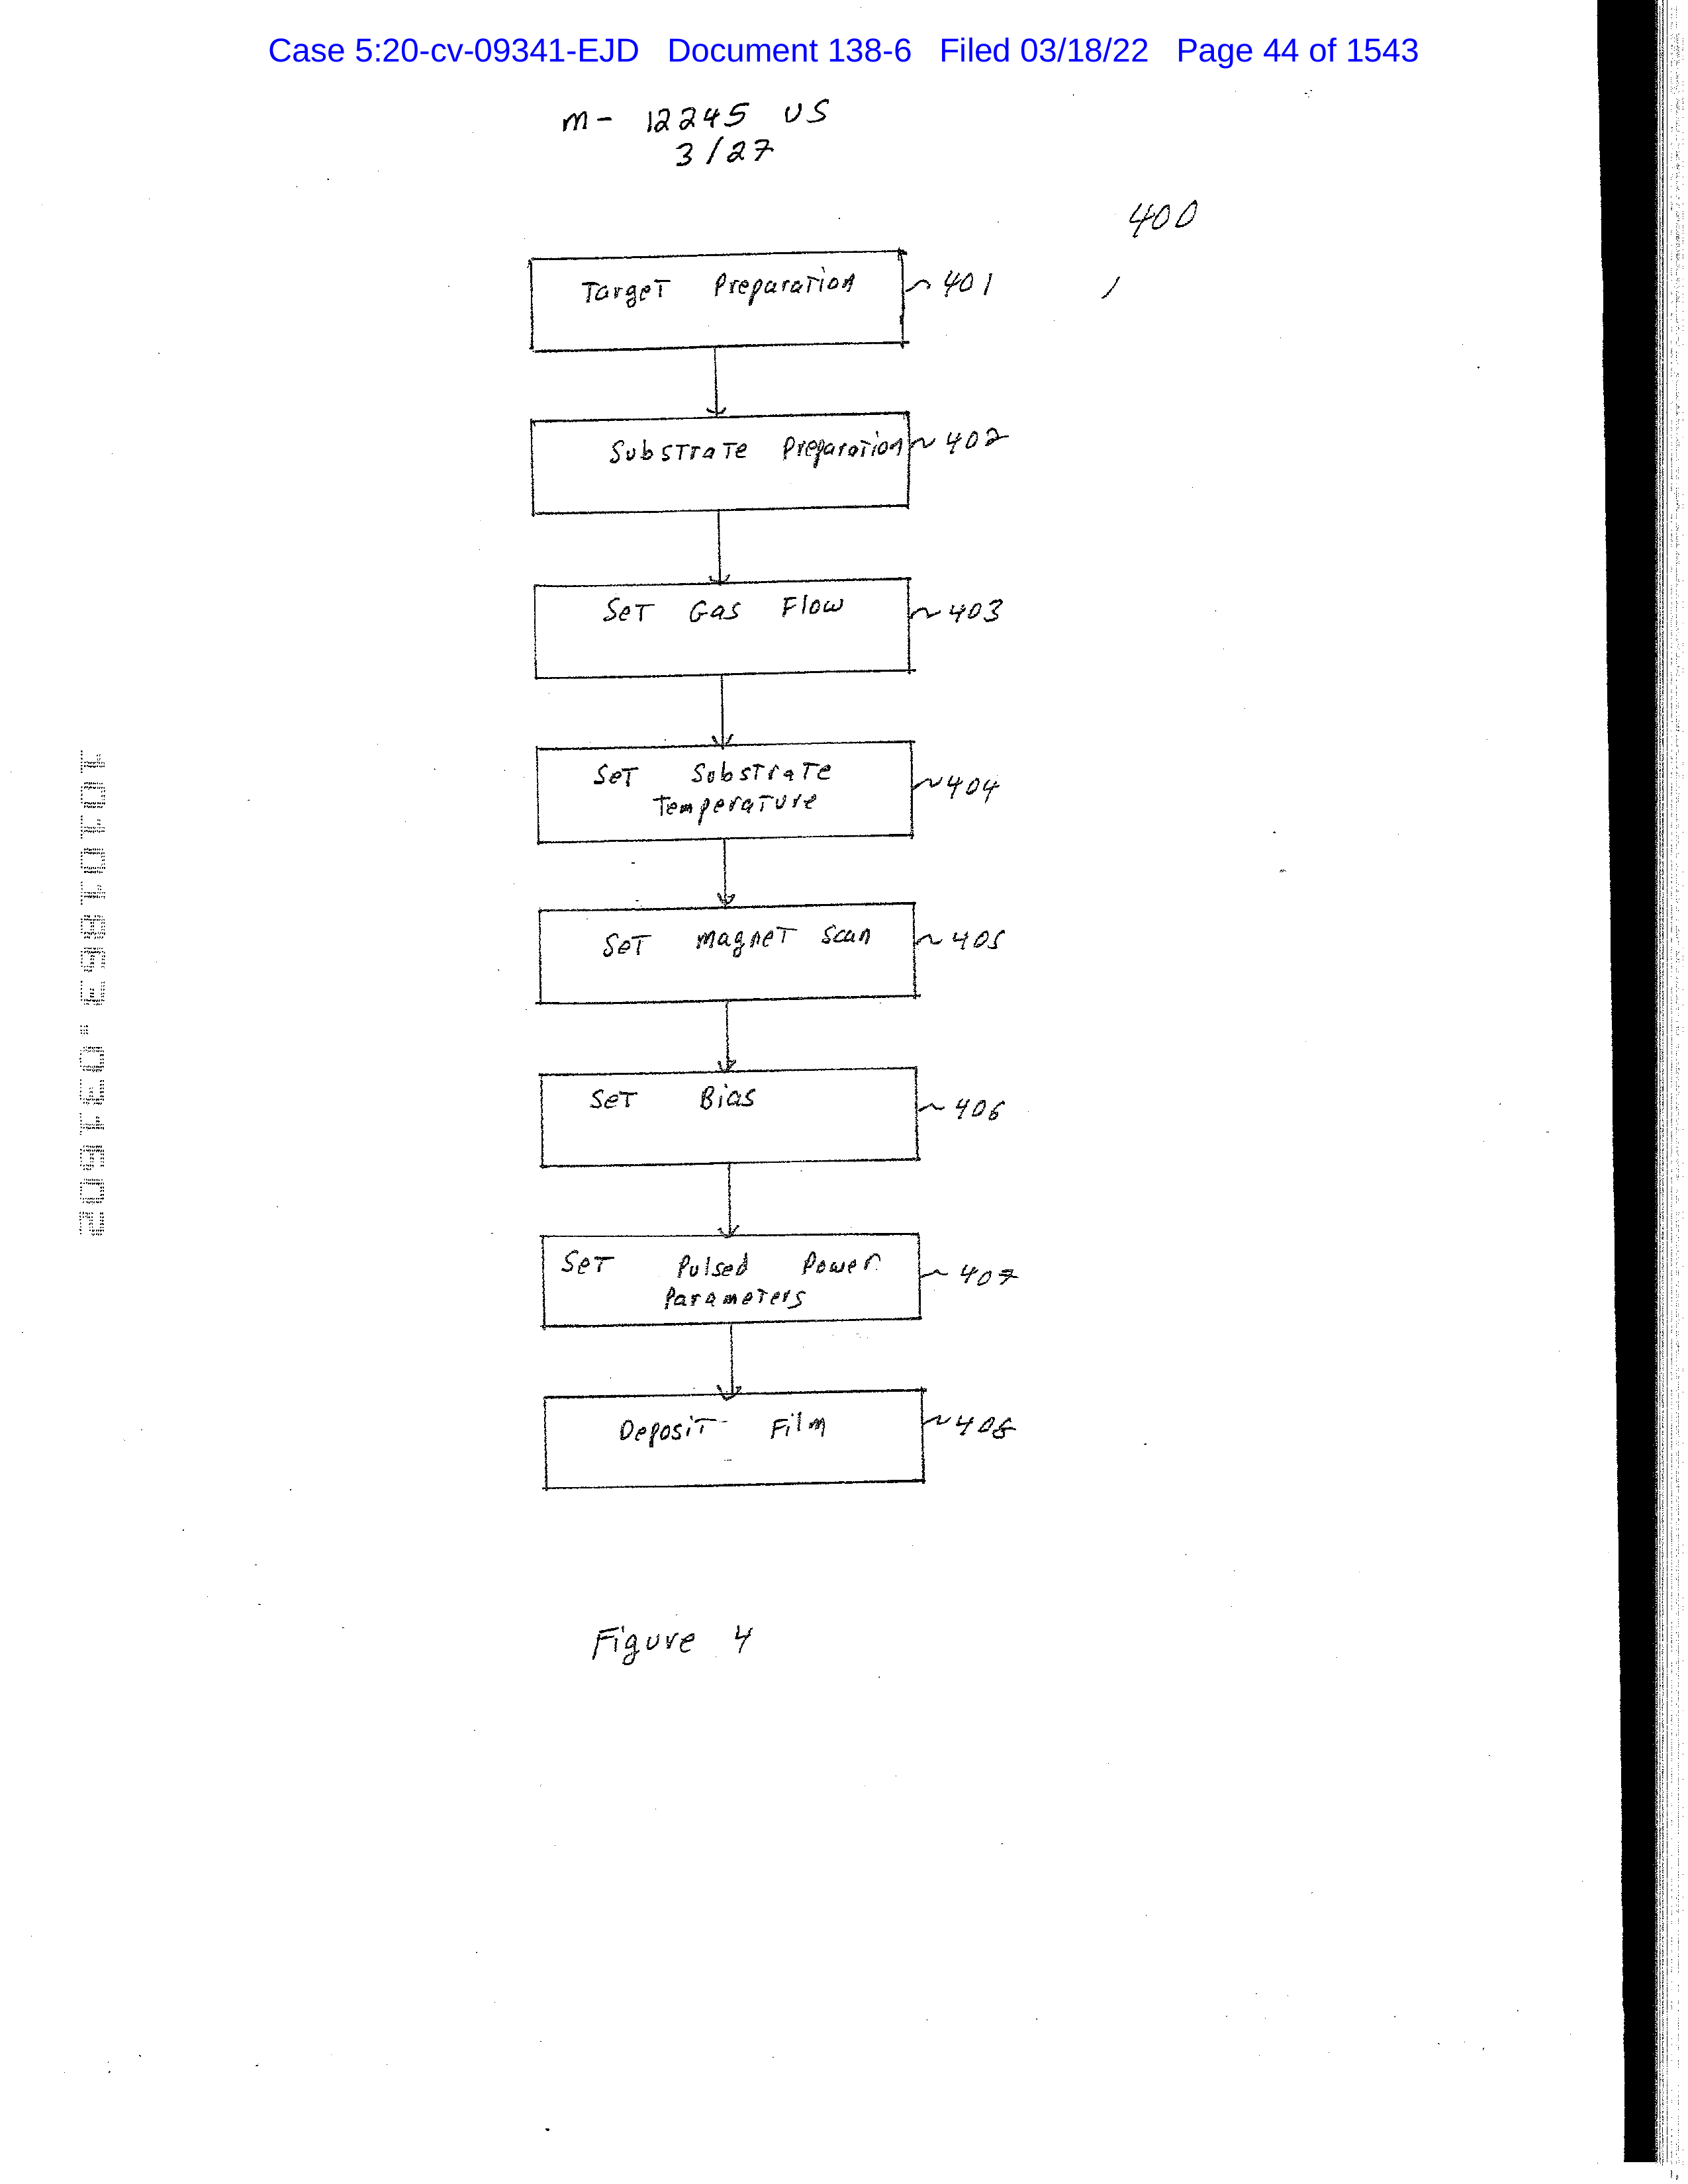 Case 5:20-cv-09341-EJD Document 138-6 Filed 03/18/22 Page 44 of 1543
M- 12245 US
3/27
400
Target Preparation 401
Substrate Preparation 402
Set Gas Flow 403
Set Substrate 404
Temperature
Set Magnet Scan 405
Set Bias 406
Set Pulsed Power 407
Parameters
Deposit Film 408
Figure 4